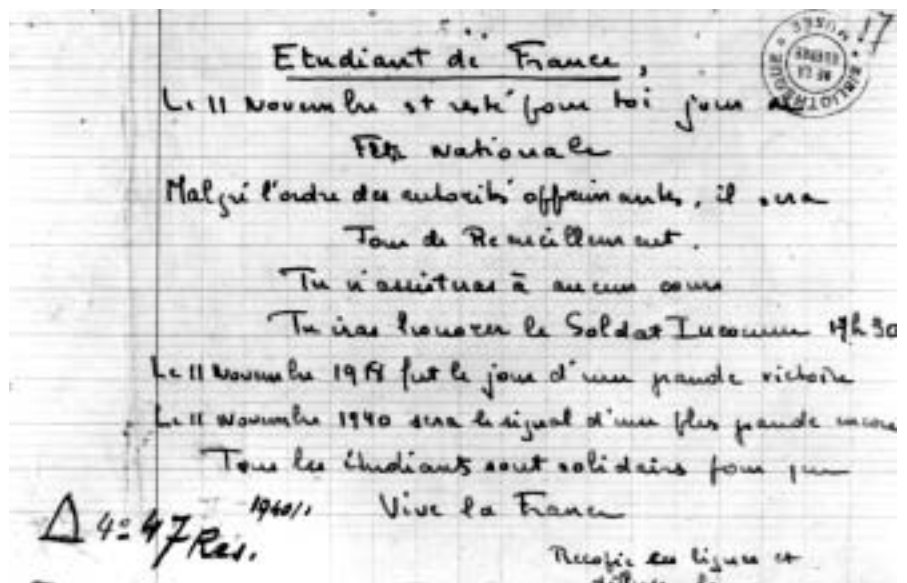 17
BIBLIOTHÈQUE MUSÉE
Etudiant de France,
Le 11 Novembre est resté pour toi jour de
Fête Nationale
Malgré l'ordre des autorités opprimantes, il sera
Jour de Recueillement.
Tu n'assisteras à aucun cours
Tu iras honorer le Soldat Inconnu 17h30
Le 11 Novembre 1918 fut le jour d'une grande victoire
Le 11 Novembre 1940 sera le signal d'une plus grande encore
Tous les étudiants sont solidaires pour que
Vive la France
1940/1
Δ 4° 47 Rés.
Recopie ces lignes et